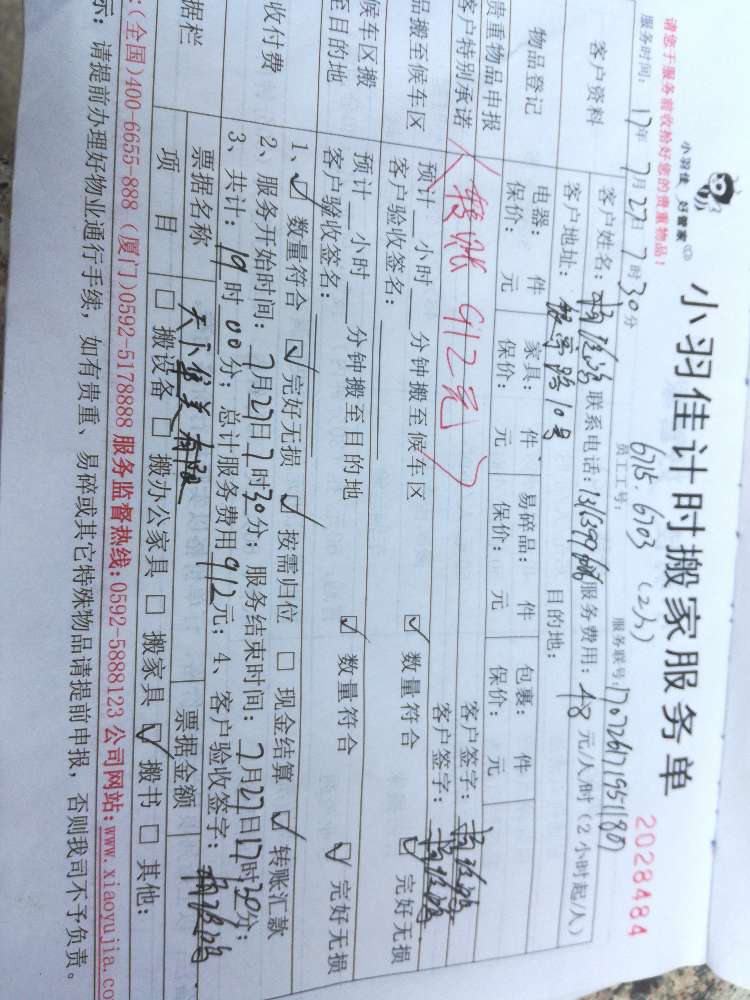 小羽佳 好管家
小羽佳计时搬家服务单
2028484
请您于服务前收拾好您的贵重物品！
员工工号： 6715. 6703 (2人)
服务时间：17年7月27日7时30分
服务联号：
客户资料
客户姓名： 联系电话： 服务费用：48元/人/时（2小时起/人）
客户地址： 路10号 目的地：
物品登记
电器： 件 家具： 件 易碎品： 件 包裹： 件
保价： 元 保价： 元 保价： 元 保价： 元
贵重物品申报
客户签字：
客户特别承诺
转账 912元
客户签字：
品搬至候车区
预计 小时 分钟搬至候车区 数量符合 完好无损
客户验收签名：
候车区搬
至目的地
预计 小时 分钟搬至目的地 数量符合 完好无损
客户验收签名：
收付费
1、 数量符合 完好无损 按需归位 现金结算 转账汇款
2、服务开始时间：7月27日7时30分；服务结束时间：7月27日17时30分；
3、共计：19时00分；总计服务费用912元；4、客户验收签字：
据栏
票据名称 票据金额
项 目 搬设备 搬办公家具 搬家具 搬书 其他：
：(全国)400-6655-888 (厦门)0592-5178888 服务监督热线:0592-5888123 公司网站:www.xiaoyujia.co
示：请提前办理好物业通行手续，如有贵重、易碎或其它特殊物品请提前申报，否则我司不予负责。